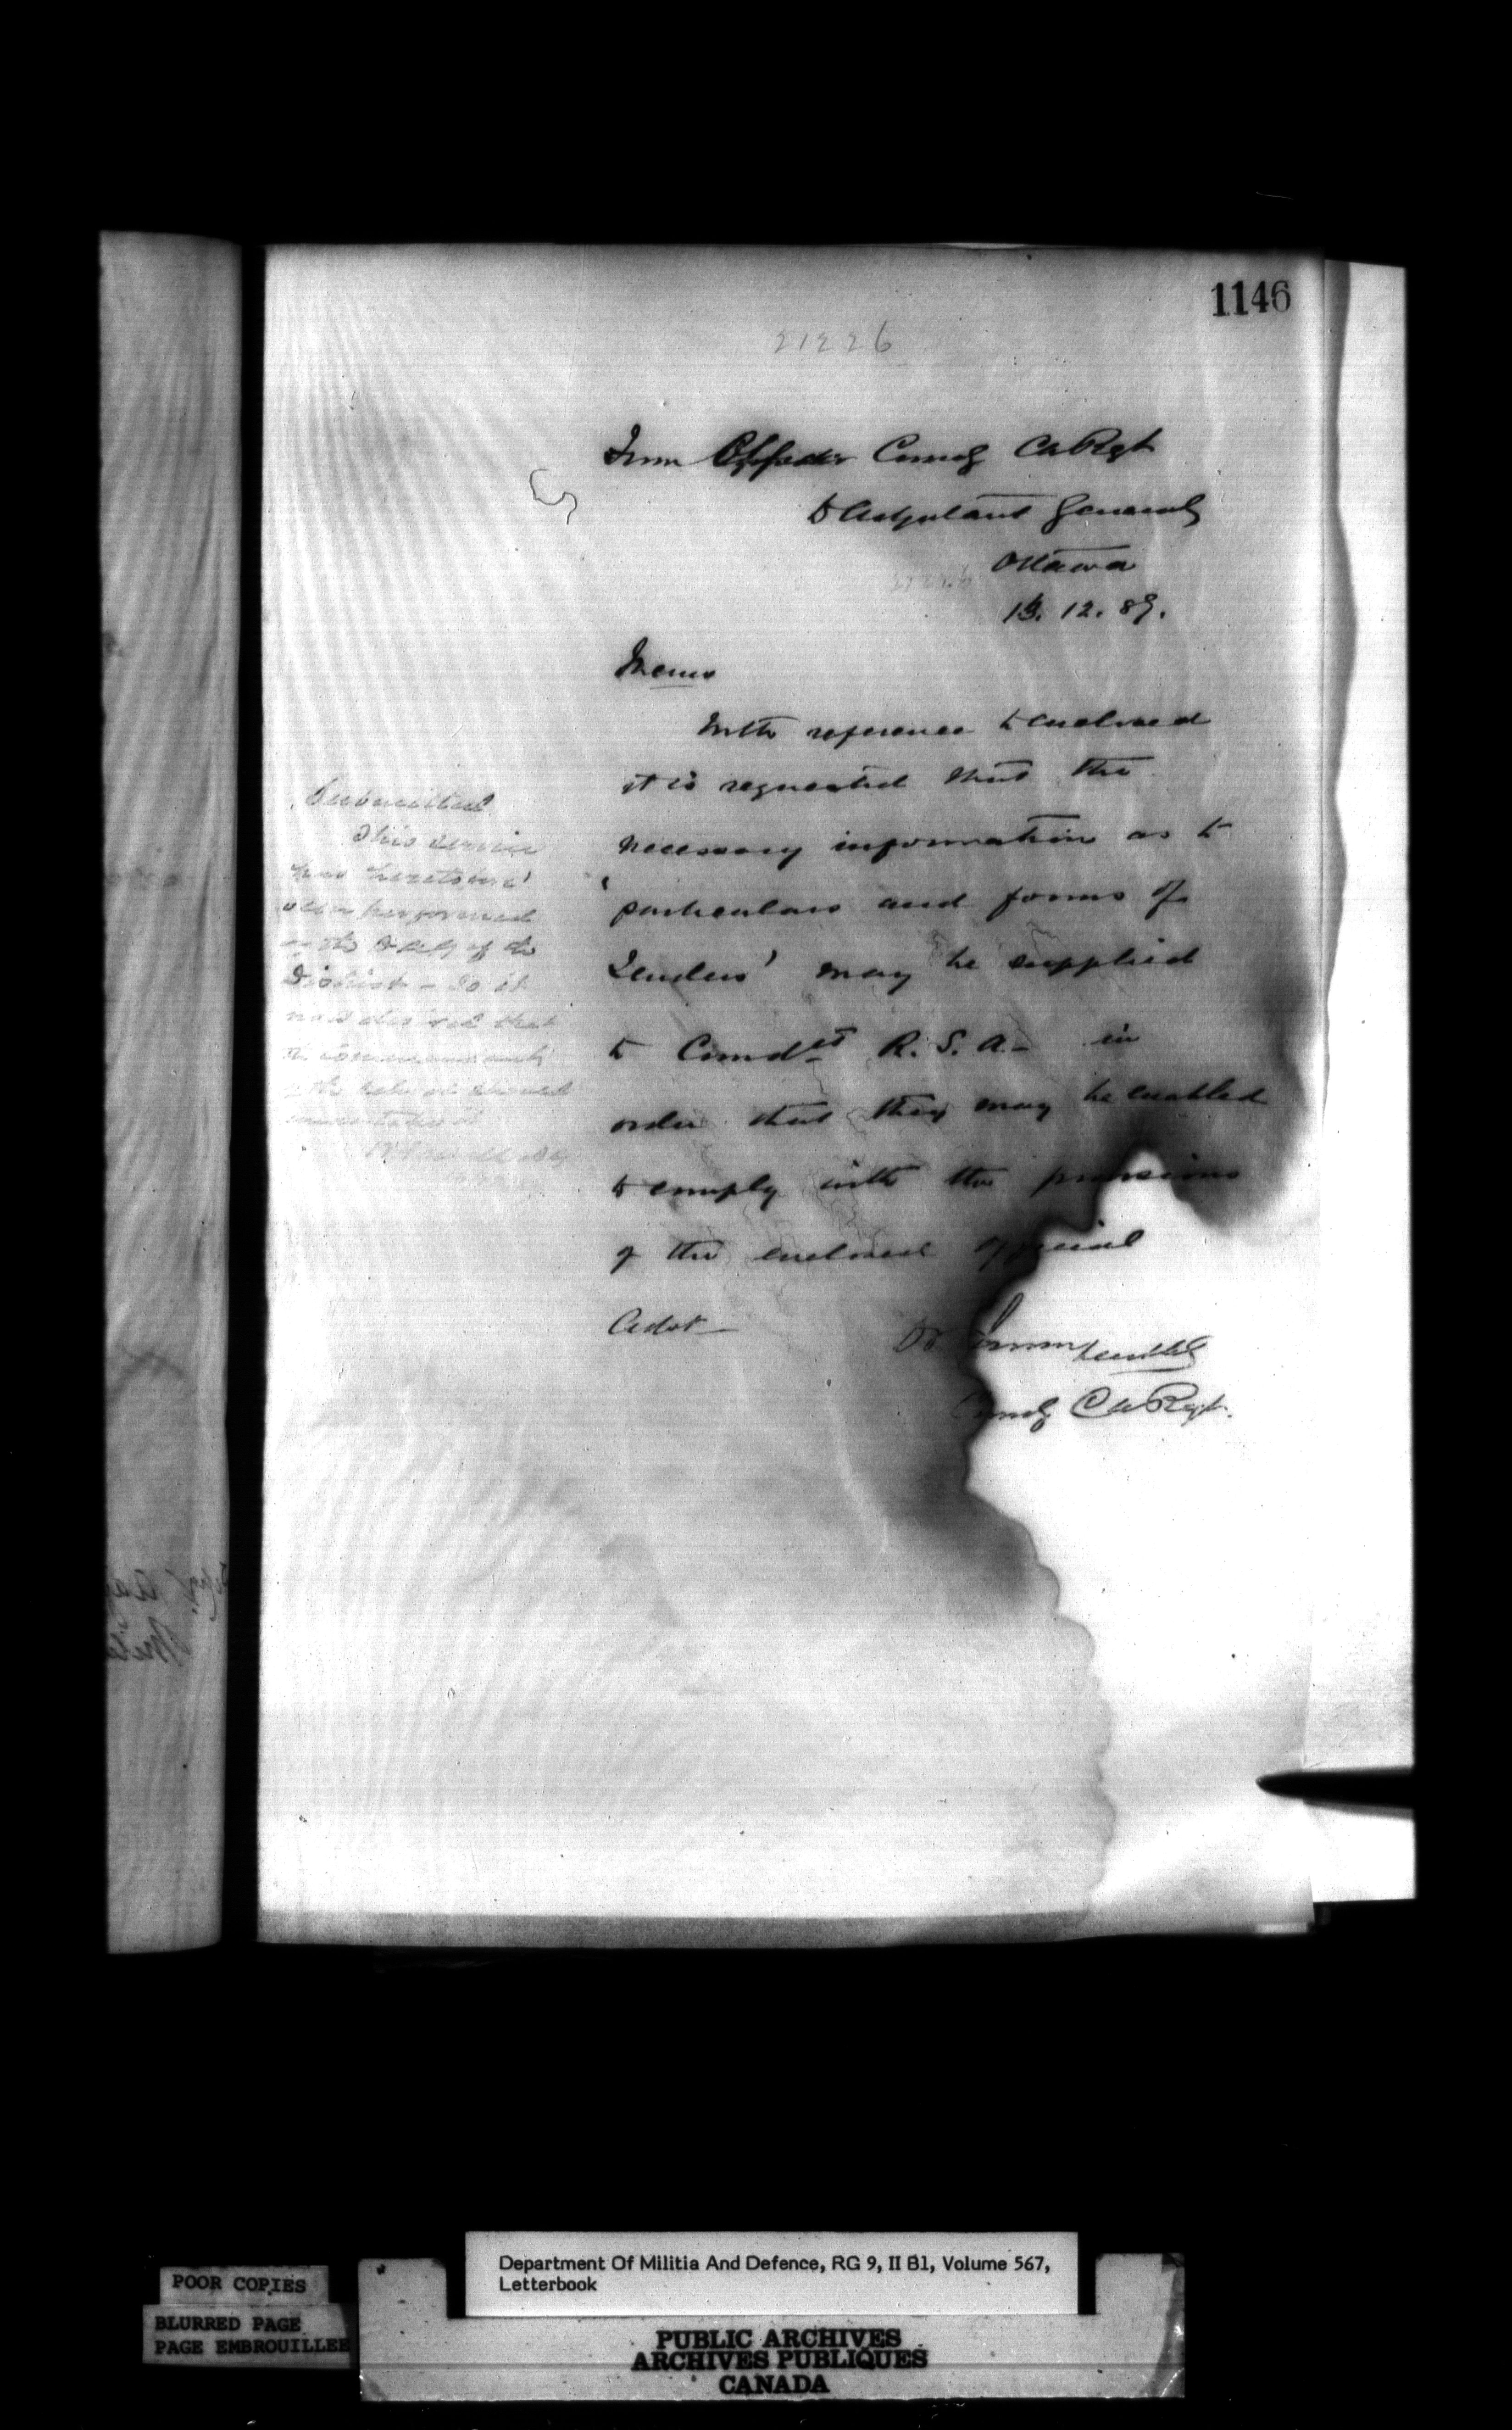 1146
21226
From Officer Comdg CA Regt
to Adjutant General
Ottawa
12. 89.
Memo
With reference to enclosed
it is requested that the
necessary information as to
'particulars and forms of
Tenders' may be supplied
to Comdt R. S. A. in
order that they may be enabled
to comply with the provisions
of the enclosed official
Comdg CA Regt.
Submitted
This service
has heretofore
been performed
by the DAG of the
District - Is it
now desired that
POOR COPIES
BLURRED PAGE
PAGE EMBROUILLEE
Department Of Militia And Defence, RG 9, II B1, Volume 567,
Letterbook
PUBLIC ARCHIVES
ARCHIVES PUBLIQUES
CANADA